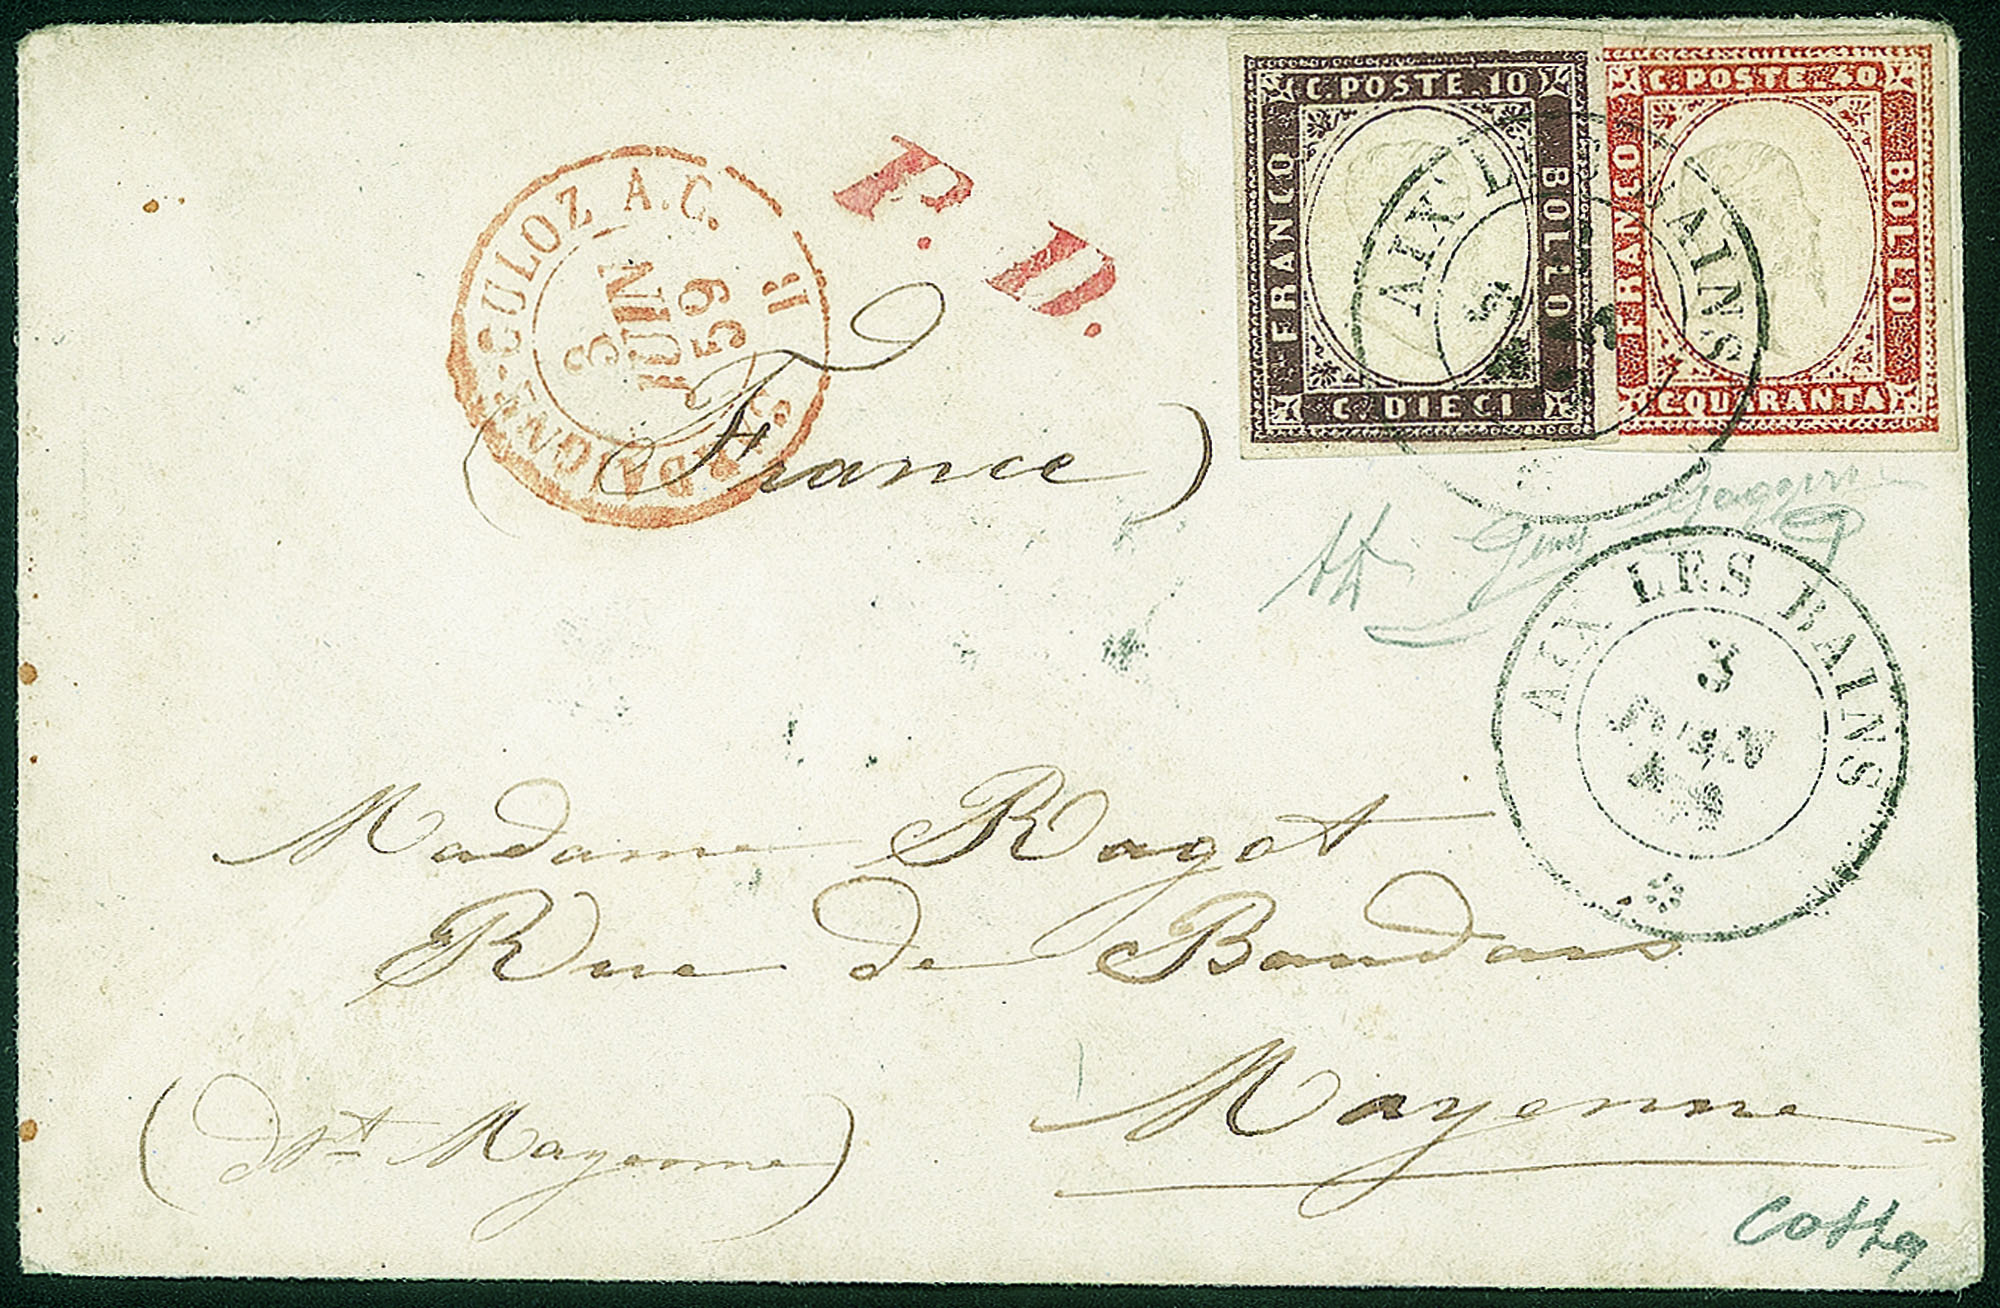 C. POSTE. 10
FRANCO
BOLLO
C. DIECI
C. POSTE. 40
FRANCO
BOLLO
C. QUARANTA
AIX LES BAINS
P. D.
SARDAIGNE-CULOZ A.C.
3
JUIN
59
R
(France)
AIX LES BAINS
3
JUIN
Madame Ragot
Rue de
Mayenne
(Dt Mayenne)